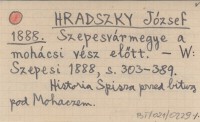 HRADSZKY József
1888. Szepesvármegye a
mohácsi vész előtt. - W:
Szepesi 1888, s. 303-389.
Historia Spisza przed bitwą
pod Mohaczem.